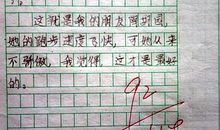 这就是我的朋友周
她的跑步速度飞快，可她从来
不骄傲，我觉得，这才是最好
的。
92